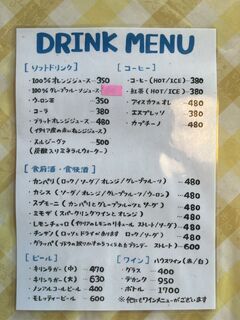 DRINK MENU
[ソフトドリンク]
・100%オレンジジュース ― 350
・100%グレープフルーツジュース
・ウーロン茶 ― 350
・コーラ ― 380
・ブラッドオレンジジュース ― 480
(イタリア産の赤いオレンジジュース)
・スルジーヴァ ― 500
(炭酸入りミネラルウォーター)
[コーヒー]
・コーヒー(HOT/ICE) 380
・紅茶(HOT/ICE) ― 380
・アイスカフェオレ ― 480
・エスプレッソ ― 380
・カプチーノ ― 480
[食前酒・食後酒]
・カンパリ(ロック/ソーダ/オレンジ/グレープフルーツ) ― 480
・カシス(ソーダ/オレンジ/グレープフルーツ/ウーロン) ― 480
・スプモーニ(カンパリとグレープフルーツとソーダ) ― 480
・ミモザ(スパークリングワインとオレンジ) ― 480
・レモンチェッロ(イタリアのレモンのリキュール ストレート/ソーダ) ― 480
・チンザノ(ロック/ソーダ) ― 480
・グラッパ( ブランデー ストレート) ― 600
[ビール]
・キリンラガー(中) ― 470
・キリンラガー(大) ― 630
・ノンアルコールビール ― 480
・モレッティービール ― 600
[ワイン] ハウスワイン(赤/白)
・グラス ― 400
・デカンタ ― 950
・ボトル ― 1700
※他にもワインメニューがございます